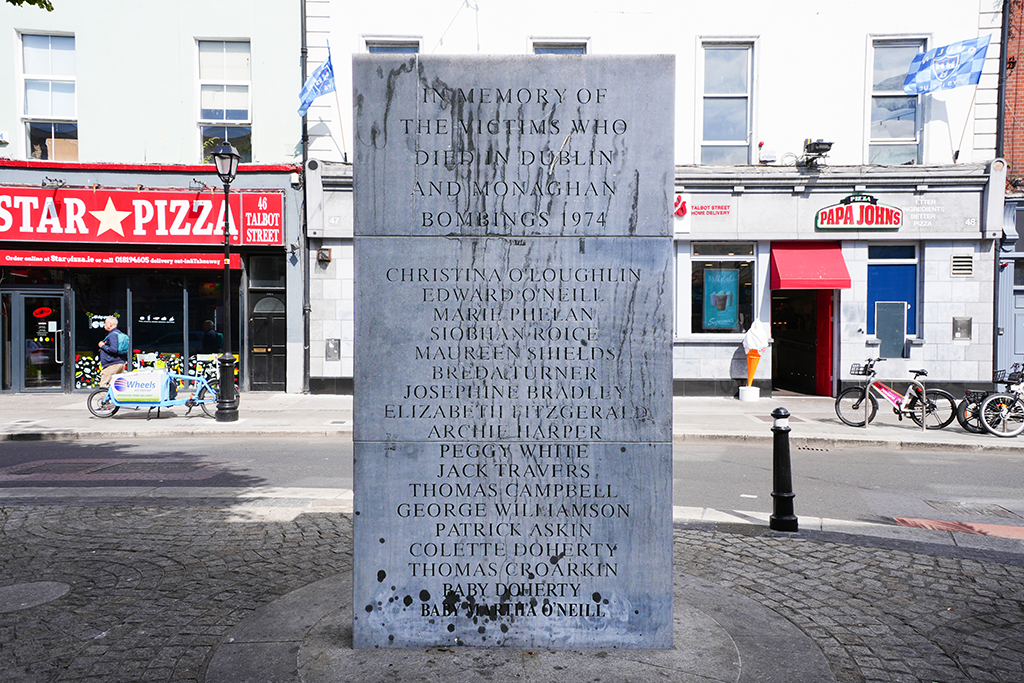 IN MEMORY OF
THE VICTIMS WHO
DIED IN DUBLIN
AND MONAGHAN
BOMBINGS 1974
CHRISTINA O'LOUGHLIN
EDWARD O'NEILL
MARIE PHELAN
SIOBHAN ROICE
MAUREEN SHIELDS
BREDA TURNER
JOSEPHINE BRADLEY
ELIZABETH FITZGERALD
ARCHIE HARPER
PEGGY WHITE
JACK TRAVERS
THOMAS CAMPBELL
GEORGE WILLIAMSON
PATRICK ASKIN
COLETTE DOHERTY
THOMAS CROARKIN
BABY DOHERTY
BABY MARTHA O'NEILL
STAR PIZZA
46
TALBOT
STREET
Order online at Starpizza.ie or call 018194605 delivery eat-in&Takeaway
Wheels
47
TALBOT STREET
HOME DELIVERY
PIZZA
PAPA JOHNS
ETTER
INGREDIENTS
BETTER
PIZZA
48